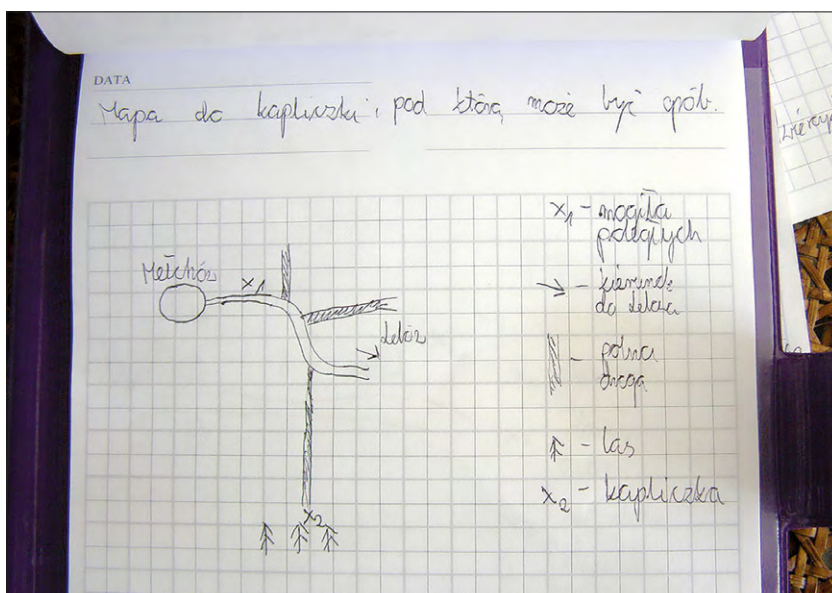 DATA
Mapa do kapliczki, pod którą może być grób.
Mełchów
x1
Lelów
x2
x1 - mogiła
poległych
→ - kierunek
do Lelowa
- polna
droga
- las
x2 - kapliczka